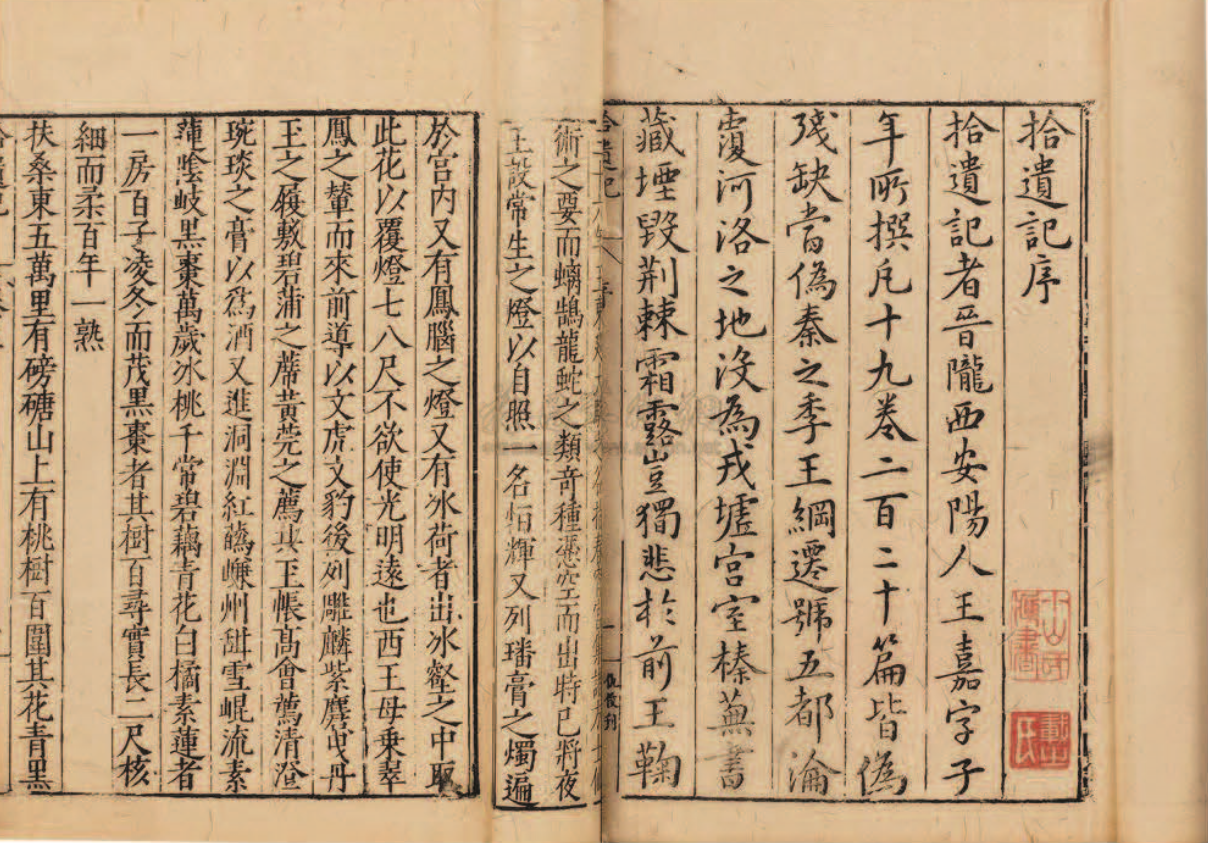 拾遺記序
拾遺記者晉隴西安陽人王嘉字子
年所撰凡十九卷二百二十篇皆為
殘缺當偽秦之季王綱遷號五都淪
覆河洛之地沒為戎墟宮室榛蕪書
藏堙毀荆棘霜露豈獨悲於前王鞠
術之要而螭鵠龍蛇之類奇種憑空而出時已將夜
王設常生之燈以自照一名恒輝又列璠膏之燭遍
於宮內又有鳳腦之燈又有冰荷者出冰壑之中取
此花以覆燈七八尺不欲使光明遠也西王母乘翠
鳳之輦而來前導以文虎文豹後列雕麟紫麏曳丹
玉之履敷碧蒲之蓆黃莞之薦共玉帳高會薦清澄
琬琰之膏以為酒又進洞淵紅蘤嵊州甜雪崐流素
蓮陰岐黑棗萬歲冰桃千常碧藕青花白橘素蓮者
一房百子凌冬而茂黑棗者其樹百尋實長二尺核
細而柔百年一熟
扶桑東五萬里有磅磄山上有桃樹百圍其花青黑